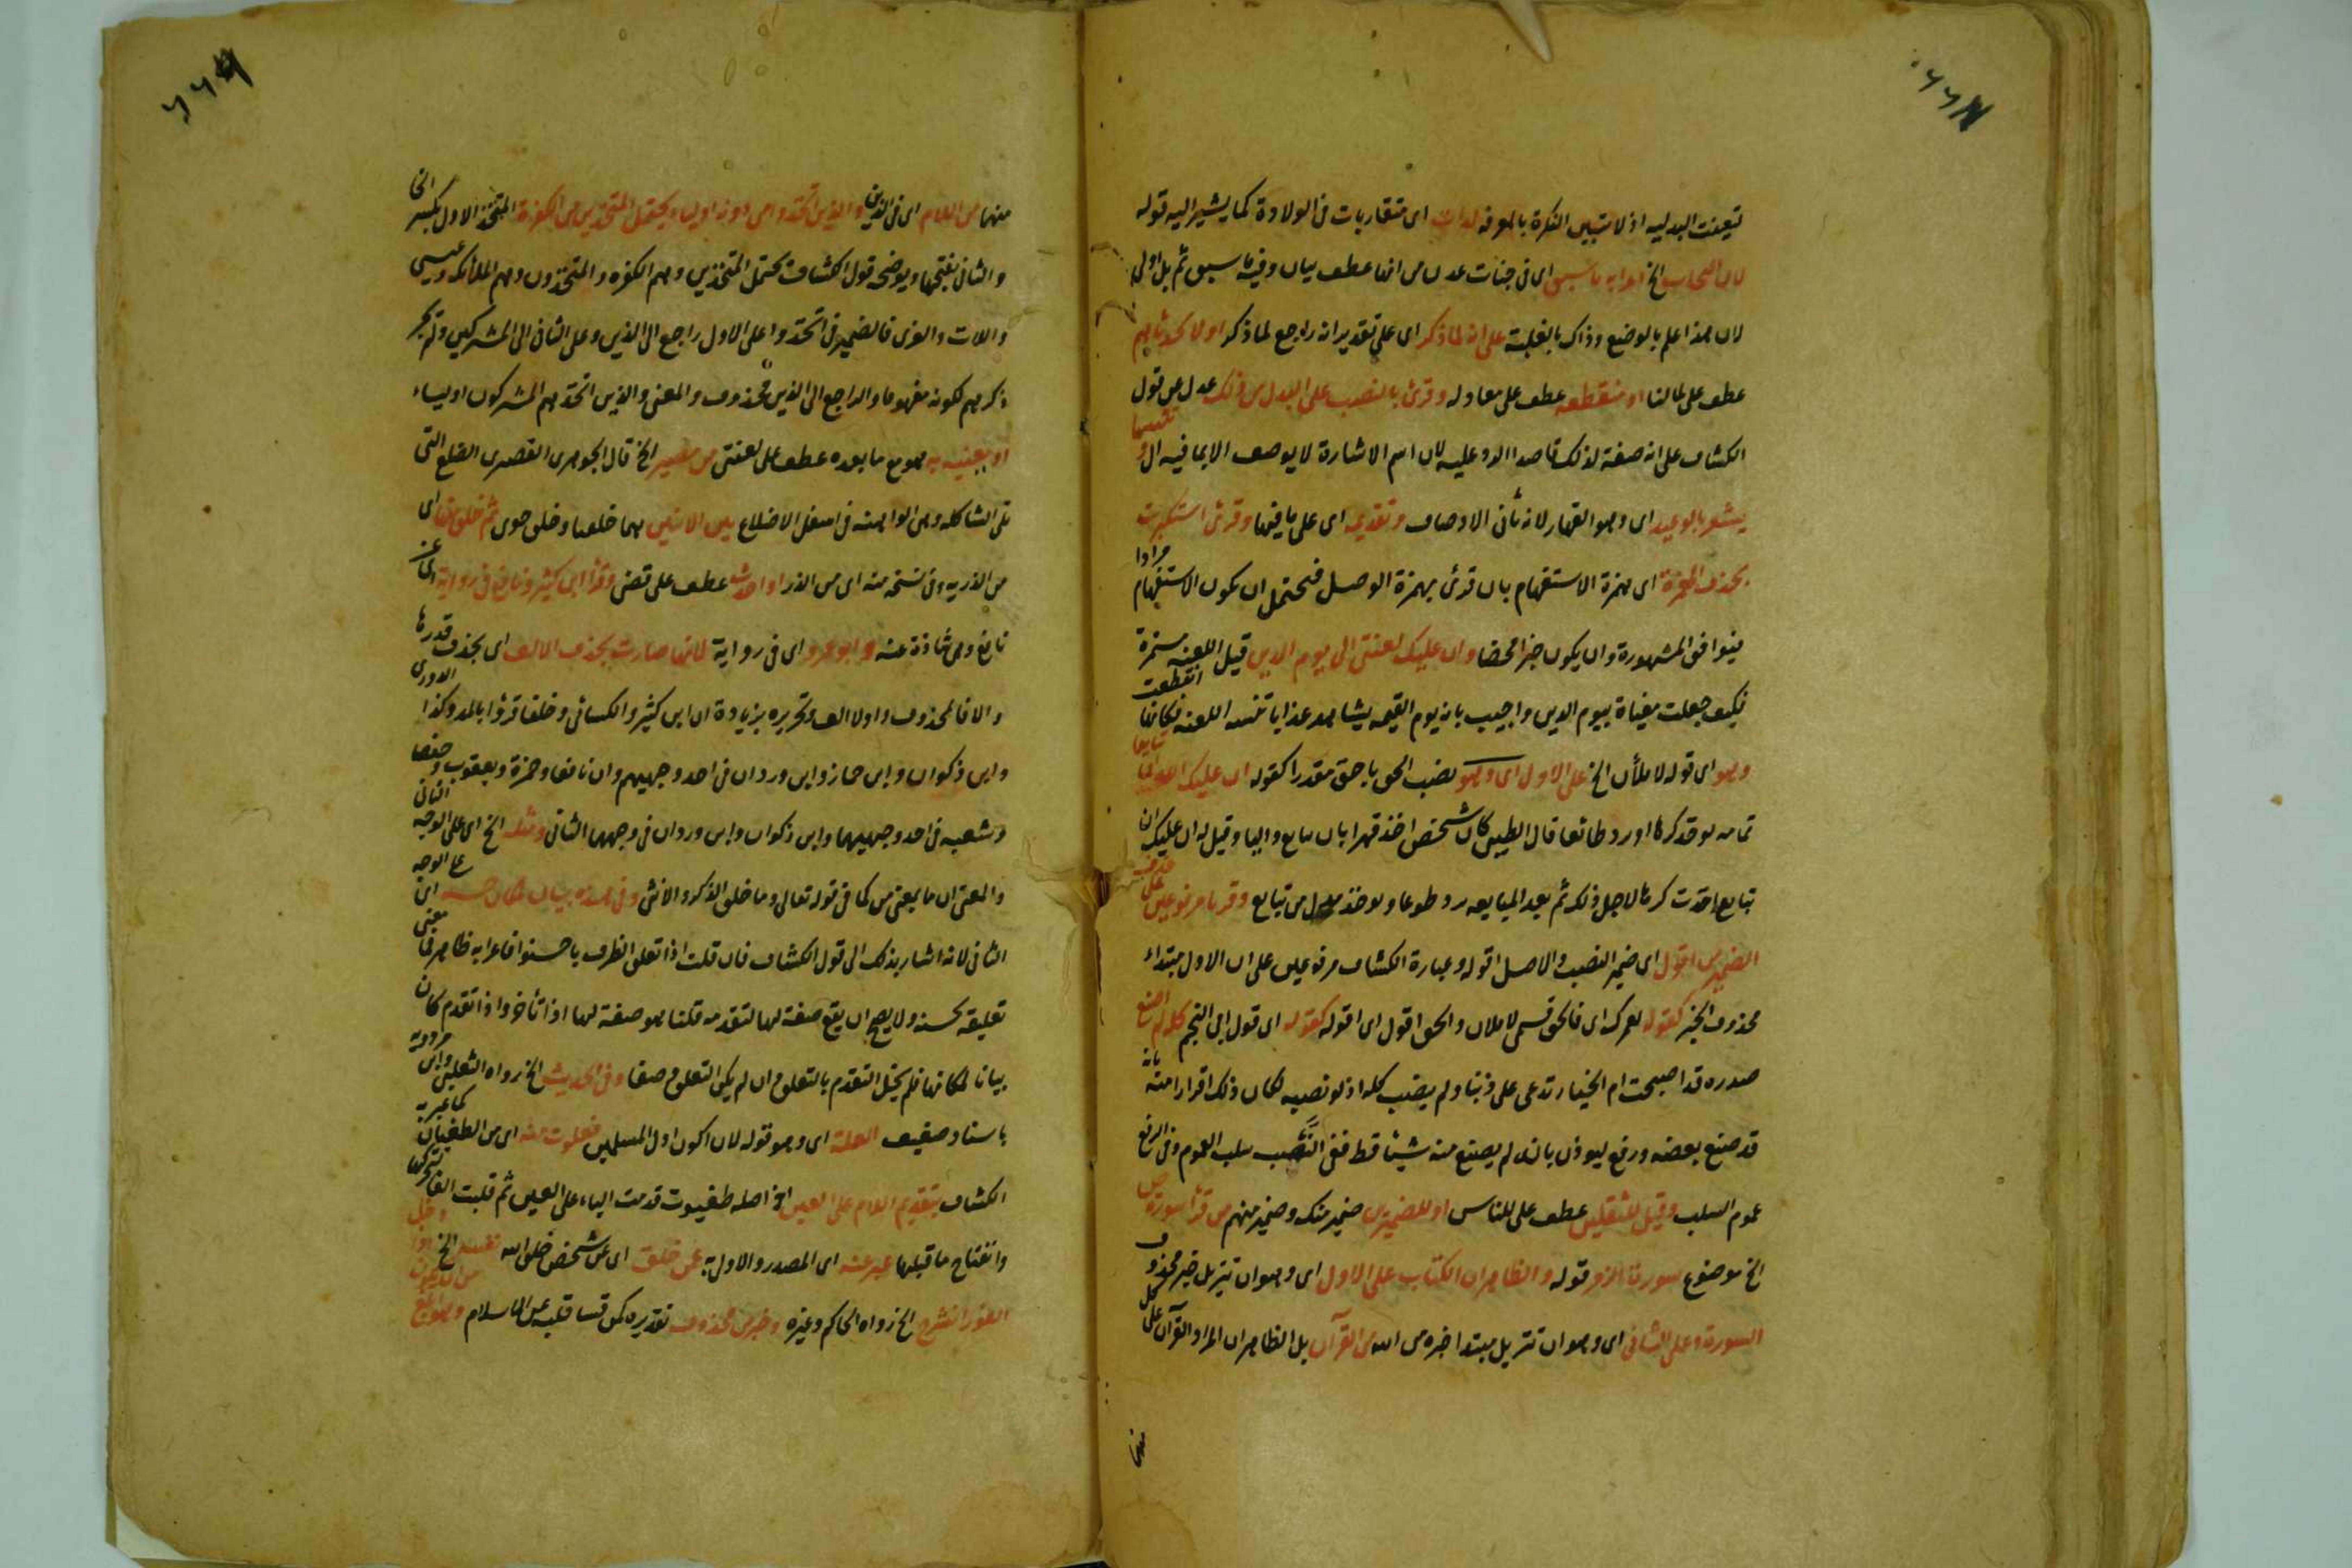 تعينت البدليه اذ لا تبيين النكرة بالمعرفه لدات اى متقاربات فى الولادة كما يشير اليه قوله
لان التحاب الخ اعرابه ما سبق اى فى جنات عدن من انها عطف بيان وفيه ما سبق ثم بل اولى
لان هذا علم بالوضع وذاك بالغلبة على انه لما ذكر اى على تقدير انه راجع لما ذكر اولا تحدثا بهم
عطف على مالنا او منقطعه عطف على معادله وقرئ بالنصب على البدل من ذلك عدل عن قول
الكشاف على انه صفة لذلك قاصدا الرد عليه لان اسم الاشارة لا يوصف الا بما فيه ال و
يشعر بالوعيد اى وهو القهار لانه ثانى الاوصاف وتقديمه اى على باقيها وقرئ استكبرت
بحذف الهمزة اى همزة الاستفهام بان قرئ بهمزة الوصل فيحتمل ان يكون الاستفهام مرادا
فيوافق المشهورة وان يكون خبرا محضا وان عليك لعنتى الى يوم الدين قيل اللعنه مستمرة
فكيف جعلت مغياة بيوم الدين واجيب بانه يوم القيمه يشاهد عذابا تنسه اللعنه فكانها انقطعت
وهو اى قوله لاملأن الخ على الاول اى وهو نصب الحق باحق مقدرا كقوله ان عليك الله ان تبايعا
تمامه توخذ كرها او رد طائعا قال الطيبى كان شخص اخذ قهرا بان يبايع واليا وقيل له ان عليك ان
تبايع اخذت كرها لاجل ذلك ثم بعد المبايعه رد طوعا وتوخذ بدل من تبايع وقريا مرفوعين على حذف
الضمير من اقول اى ضمير النصب والاصل اقوله وعبارة الكشاف مرفوعين على ان الاول مبتداء
محذوف الخبر كقوله لعمرك اى فالحق قسمى لاملان والحق اقول اى اقوله كقوله اى قول ابى النجم كله لم اصنع
صدره قد اصبحت ام الخيار تدعى على ذنبا ولم ينصب كله اذ لو نصبه لكان ذلك اقرارا منه بانه
قد صنع بعضه ورفع ليوذن بانه لم يصنع منه شيئا قط ففى النصب سلب العموم وفى الرفع
عموم السلب وقيل للثقلين عطف على للناس او للضميرين ضمير منك وضمير منهم من قرأ سورة ص
الخ موضوع سورة الزمر قوله والظاهر ان الكتاب على الاول اى وهو ان تنزيل خبر محذوف
السورة وعلى الثانى اى وهو ان تنزيل مبتدا خبره من الله القرآن بل الظاهر ان المراد القرآن على كل
منها
منها من اللام اى فى الدين والذين اتخذوا من دونه اولياء يحتمل المتخذين من الكفرة المتخذ الاول بكسر الخا
والثانى بفتحها ويوضحه قول الكشاف يحتمل المتخذين وهم الكفره والمتخذون وهم الملائكه وعيسى
واللات والعزى فالضمير فى اتخذوا على الاول راجع الى الذين وعلى الثانى الى المشركين ولم يجر
ذكرهم لكونه مفهوما والراجع الى الذين محذوف والمعنى والذين اتخذهم المشركون اولياء
او يعينه به هو مع ما بعده عطف على لعنتى من قصير الخ قال الجوهرى القصرى الضلع التى
تلى الشاكله وهى الواهنه فى اسفل الاضلاع بين الايتين هما خلقها وخلق حوى ثم خلق منها اى
من الذريه وفى نسخه منه اى من الذر او احدث عطف على قضى وقرا ابن كثير ونافع فى رواية اى عن
نافع وهى شاذة عنه وابو عمرو اى فى رواية لانها صارت بحذف الالف اى بحذف قدرها
والا فالمحذوف اولا الف وتحريره بزيادة ان ابن كثير والكسائى وخلفا قرؤا بالمد وكذا الدورى
وابن ذكوان وابن جماز وابن وردان فى احد وجهيهم وان نافعا وحمزة ويعقوب وحفصا
وشعبه فى احد وجهيهما وابن ذكوان وابن وردان فى وجههما الثانى ومثله الخ اى على الوجه الثانى
والمعنى ان ما بمعنى من كما فى قوله تعالى وما خلق الذكر والانثى وفى هذه بيان لمكان حسنه اى على الوجه
الثانى لانه اشار بذلك الى قول الكشاف فان قلت اذا تعلق الظرف باحسنوا فاعرابه ظاهر فما معنى
تعليقه بحسنه ولا يصح ان يقع صفة لها لتقدمه قلنا هو صفة لها اذا تأخر واذا تقدم كان
بيانا لمكانها فلم يخل التقدم بالتعلق وان لم يكن التعلق وصفا وفى الحديث الخ رواه الثعلبى وابن مردويه
باسناد ضعيف العلة اى وهو قوله لان اكون اول المسلمين فعلوت منه اى من الطغيان كما عبر به
الكشاف بتقديم اللام على العين اذ اصله طغيوت قدمت الياء على العين ثم قلبت الفا لتحركها
وانفتاح ما قبلها عبر عنه اى المصدر والاول به عن خلق اى عن شخص خلق الله نفسه الخ
النور انشرح الخ رواه الحاكم وغيره وخبر من محذوف تقديره كمن قسا قلبه عن الاسلام وهو ابلغ